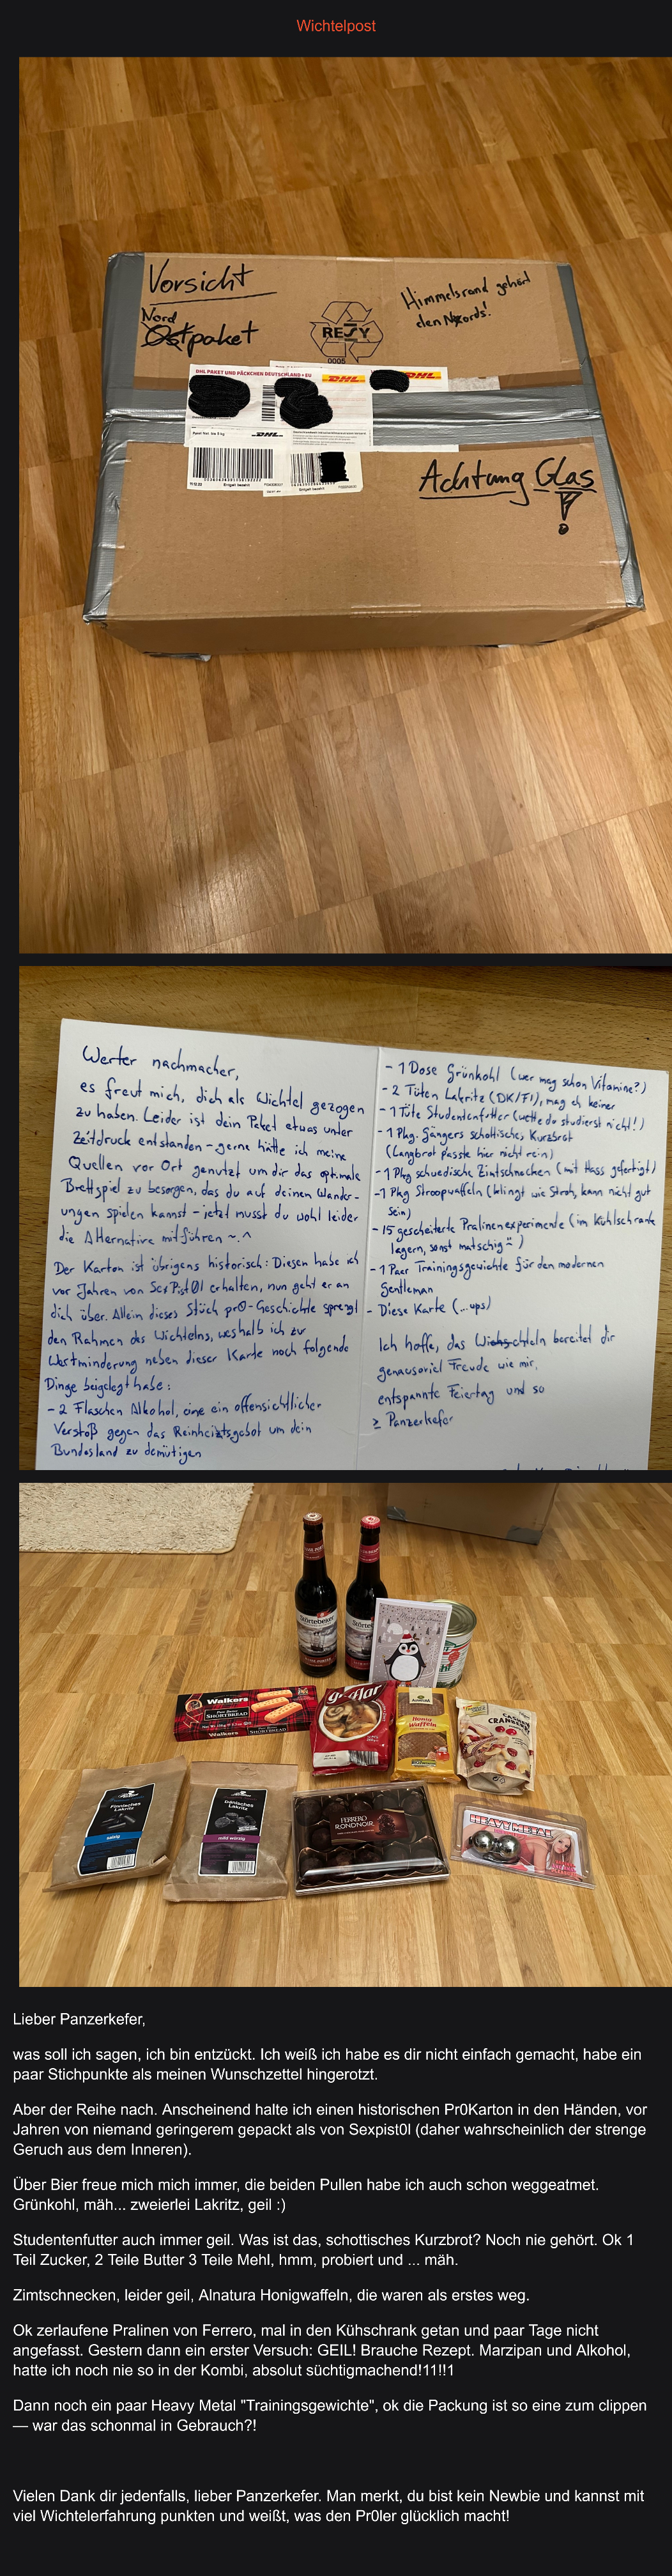 Wichtelpost
Vorsicht
Nord
Ostpaket
RESY
0005
Himmelsrand gehört
den Nords!
DHL PAKET UND PÄCKCHEN DEUTSCHLAND + EU
DHL
DHL
DHL
Achtung Glas!
Werter nachmacher,
es freut mich, dich als Wichtel gezogen
zu haben. Leider ist dein Paket etwas unter
Zeitdruck entstanden – gerne hätte ich meine
Quellen vor Ort genutzt um dir das optimale
Brettspiel zu besorgen, das du auf deinen Wander-
ungen spielen kannst – jetzt musst du wohl leider
die Alternative mitführen ~.^
Der Karton ist übrigens historisch: Diesen habe ich
vor Jahren von SexPist0l erhalten, nun geht er an
dich über. Allein dieses Stück pr0-Geschichte sprengt
den Rahmen des Wichtelns, weshalb ich zur
Wertminderung neben dieser Karte noch folgende
Dinge beigelegt habe:
- 2 Flaschen Alkohol, eine ein offensichtlicher
Verstoß gegen das Reinheitsgebot um dein
Bundesland zu demütigen
- 1 Dose Grünkohl (wer mag schon Vitamine?)
- 2 Tüten Lakritz (DK/FI), mag eh keiner
- 1 Tüte Studentenfutter (wette du studierst nicht!)
- 1 Pkg. Gängers schottisches Kurzbrot
(Langbrot passte hier nicht rein)
- 1 Pkg schwedische Zimtschnecken (mit Hass gefertigt)
- 1 Pkg Stroopwaffeln (klingt wie Stroh, kann nicht gut
sein)
- 15 gescheiterte Pralinenexperimente (im Kühlschrank
lagern, sonst matschig)
- 1 Paar Trainingsgewichte für den modernen
Gentleman
- Diese Karte (...ups)
Ich hoffe, das Wichteln bereitet dir
genausoviel Freude wie mir,
entspannte Feiertag und so
Panzerkefer
Störtebeker
Walkers
SHORTBREAD
Walkers
SHORTBREAD
Honig
Waffeln
CRANBERRY
Finnisches
Lakritz
salzig
Dänisches
Lakritz
mild würzig
FERRERO
RONDNOIR
HEAVY METAL
Lieber Panzerkefer,
was soll ich sagen, ich bin entzückt. Ich weiß ich habe es dir nicht einfach gemacht, habe ein
paar Stichpunkte als meinen Wunschzettel hingerotzt.
Aber der Reihe nach. Anscheinend halte ich einen historischen Pr0Karton in den Händen, vor
Jahren von niemand geringerem gepackt als von Sexpist0l (daher wahrscheinlich der strenge
Geruch aus dem Inneren).
Über Bier freue mich mich immer, die beiden Pullen habe ich auch schon weggeatmet.
Grünkohl, mäh... zweierlei Lakritz, geil :)
Studentenfutter auch immer geil. Was ist das, schottisches Kurzbrot? Noch nie gehört. Ok 1
Teil Zucker, 2 Teile Butter 3 Teile Mehl, hmm, probiert und ... mäh.
Zimtschnecken, leider geil, Alnatura Honigwaffeln, die waren als erstes weg.
Ok zerlaufene Pralinen von Ferrero, mal in den Kühschrank getan und paar Tage nicht
angefasst. Gestern dann ein erster Versuch: GEIL! Brauche Rezept. Marzipan und Alkohol,
hatte ich noch nie so in der Kombi, absolut süchtigmachend!11!!1
Dann noch ein paar Heavy Metal "Trainingsgewichte", ok die Packung ist so eine zum clippen
— war das schonmal in Gebrauch?!
Vielen Dank dir jedenfalls, lieber Panzerkefer. Man merkt, du bist kein Newbie und kannst mit
viel Wichtelerfahrung punkten und weißt, was den Pr0ler glücklich macht!